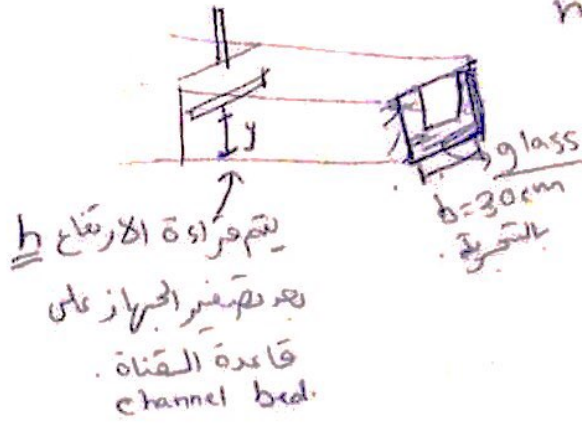 n
y
glass
b=30cm
التجربة.
يتم قراءة الارتفاع h
بعد تصفير الجهاز على
قاعدة القناة.
channel bed.